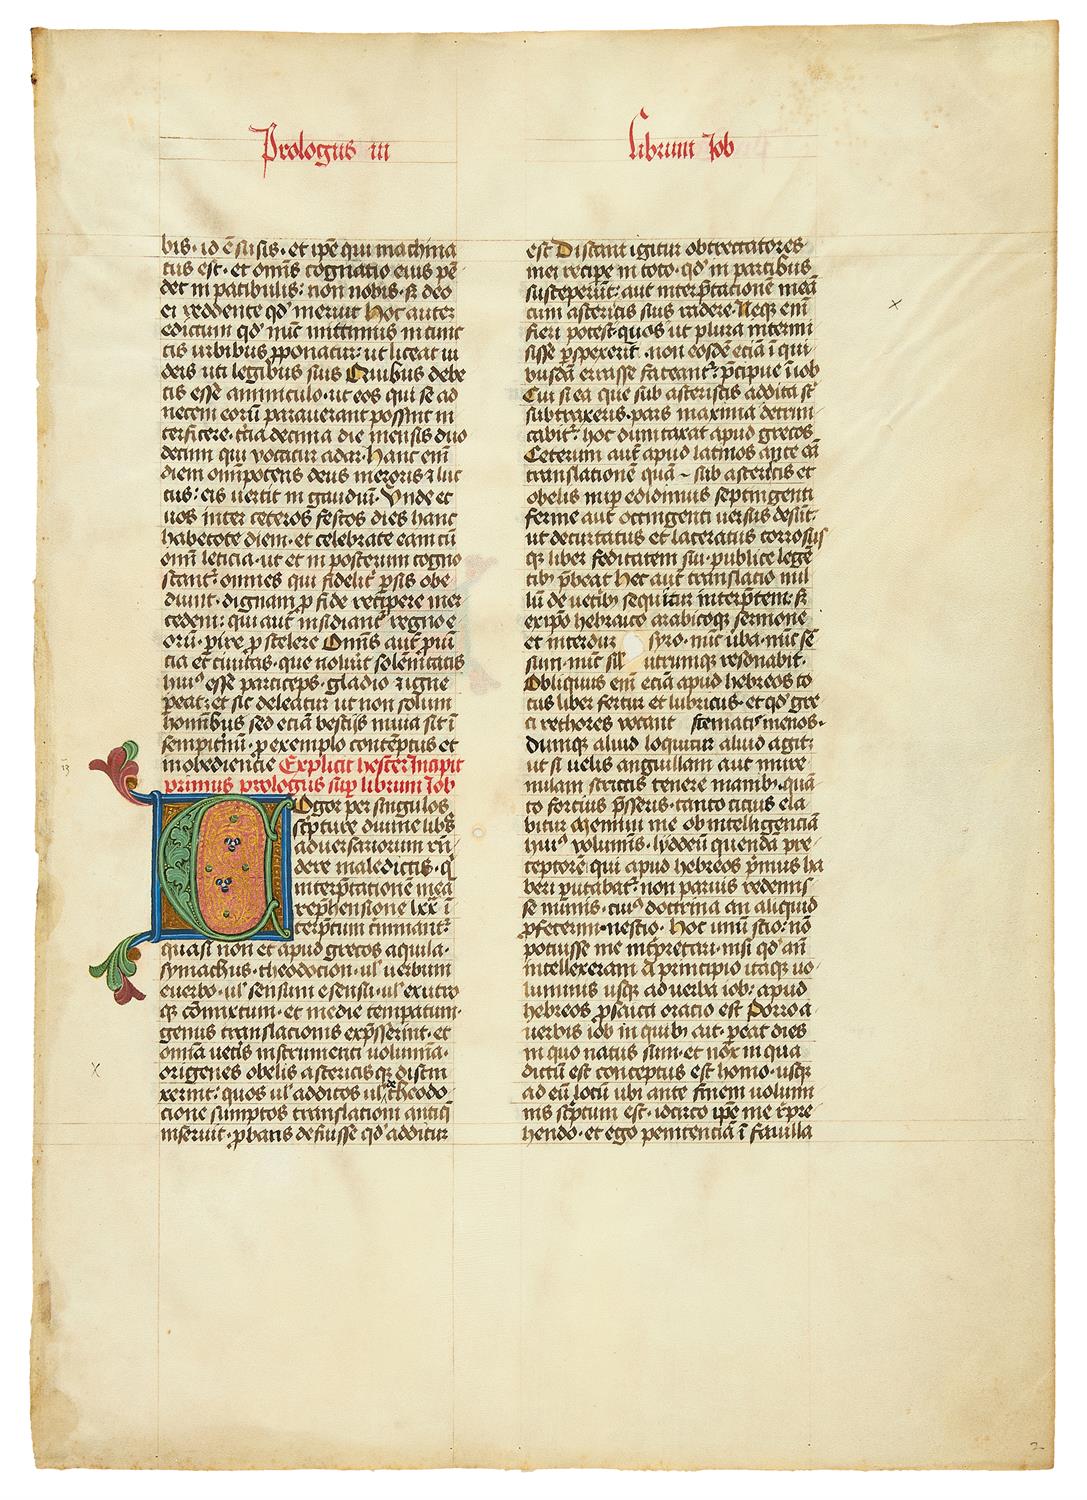 Prologus in
Librum Job
bis · id ē susis · et ip̄e qui machina
tus est · et om̄is cognatio eius pē
det in patibulis: non nobis · sꝫ deo
ei reddente qd' meruit Hoc autem
edictum qd' nūc mittimus in cunc
tis urbibus ꝓponatur: ut liceat iu
deis uti legibus suis Quibus debe
tis esse aminiculo · ut eos qui se ad
necem eorū parauerant possint in
terficere · tcia decima die mensis duo
decimi qui vocatur adar · Hanc enī
diem omīpotens deus meroris ⁊ luc
tus: eis uertit in gaudiū · Vnde et
uos inter ceteros festos dies hanc
habetote diem · et celebrate eam cū
omī leticia · ut et in posterum cogno
scant᷑ omnes qui fidelit᷑ ꝑsis obe
diunt · dignam ꝓ fide recip̄ere mer
cedem: qui aut̄ insidiant᷑ regno e
orū · ꝑire ꝓ scelere Om̄is aut̄ ꝓuī
cia et ciuitas · que noluīt solēnitatis
hui⁹ esse particeps · gladio ⁊ igne
ꝑeat: et sic deleatur ut non solum
hominibus sed eciā bestijs inuia sit ī
sempit᷑nū · ꝓ exemplo contēptus et
inobediencie Explicit hester Incipit
primus prologus sup̄ librum Job
COgor per singulos
sc̄pture diuine lib᷑s
aduersariorum rn̄
dere maledictis · q̄
interp̄tationē meā
rep̄hensione lxx ī
terp̄tum cͥminant᷑:
quasi non et apud grecos aquila ·
symachus · theodocion · ul' uerbum
e uerbo · ul' sensum e sensu · ul' ex utro
qꝫ cōmixtum · et medie temp̄atum ·
genus translationis exp̄sserint · et
omīa uetīs instrumenti uolumīa ·
origenes obelis astericis qꝫ distin
xerint: quos ul' additos ul' de theodo
cione sumptos translationi antiq̄
inseruit · ꝓbans defuisse qd' additur
est Distant igitur obtrectatores
mei recipe in toto · qd' in partibus
susceperūt: aut interp̄tationē meā
cum astericis suis radere · Neqꝫ enī
fieri potest · quos ut plura intermi
sisse ꝑspexerīt · non eosdē eciā ī qui
busdā errasse fateant᷑: p̄cipue ī iob
Cui si ea que sub astericis addita st̄
subtraxeris · pars maxima detrun
cabit᷑: hoc dumtaxat apud grecos
Ceterum aut̄ apud latinos ante eā
translationē quā ~ sub astericis et
obelis nup̄ edidimus septingenti
ferme aut octingenti uersus desūt:
ut decurtatus et laceratus corrosus
qꝫ liber feditatem sui · publice legē
tibꝫ p̄beat Hec aut̄ translatio nul
lū de uetibꝫ sequitur interp̄tem: sꝫ
ex ip̄o hebraico arabicoqꝫ sermone
et interdū syro · nūc uba · nūc sē
sum · nūc sil' utrumqꝫ resonabit ·
Obliquus enī eciā apud hebreos to
tus liber fertur et lubricus · et qd' gre
ci rethores vocant stematismenos ·
Dumqꝫ aliud loquitur aliud agit:
ut si uelis anguillam aut mure
nulam strictis tenere manibꝫ · quā
to fortius p̄sseris · tanto citius ela
bitur Memini me ob intelligenciā
hui⁹ volumīs · lyddeū quendā pre
ceptorē qui apud hebreos p̄mus ha
beri putabat᷑ · non paruis redemis
se nūmis · cui⁹ doctrina an aliquid
ꝓfecerim · nestio · Hoc unū scio: nō
potuisse me int̄pretari · nisi qd' an̄
intellexeram A principio itaqꝫ uo
luminis usqꝫ ad uerba iob: apud
hebreos ꝓsaica oratio est Porro a
uerbis iob in quibꝫ ait · ꝑeat dies
in quo natus sum · et nox in qua
dictū est conceptus est homo · usqꝫ
ad eū locū ubi ante finem uolumi
nis sc̄ptum est · idcirco ip̄e me rep̄re
hendo · et ego penitenciā ī fauilla
2